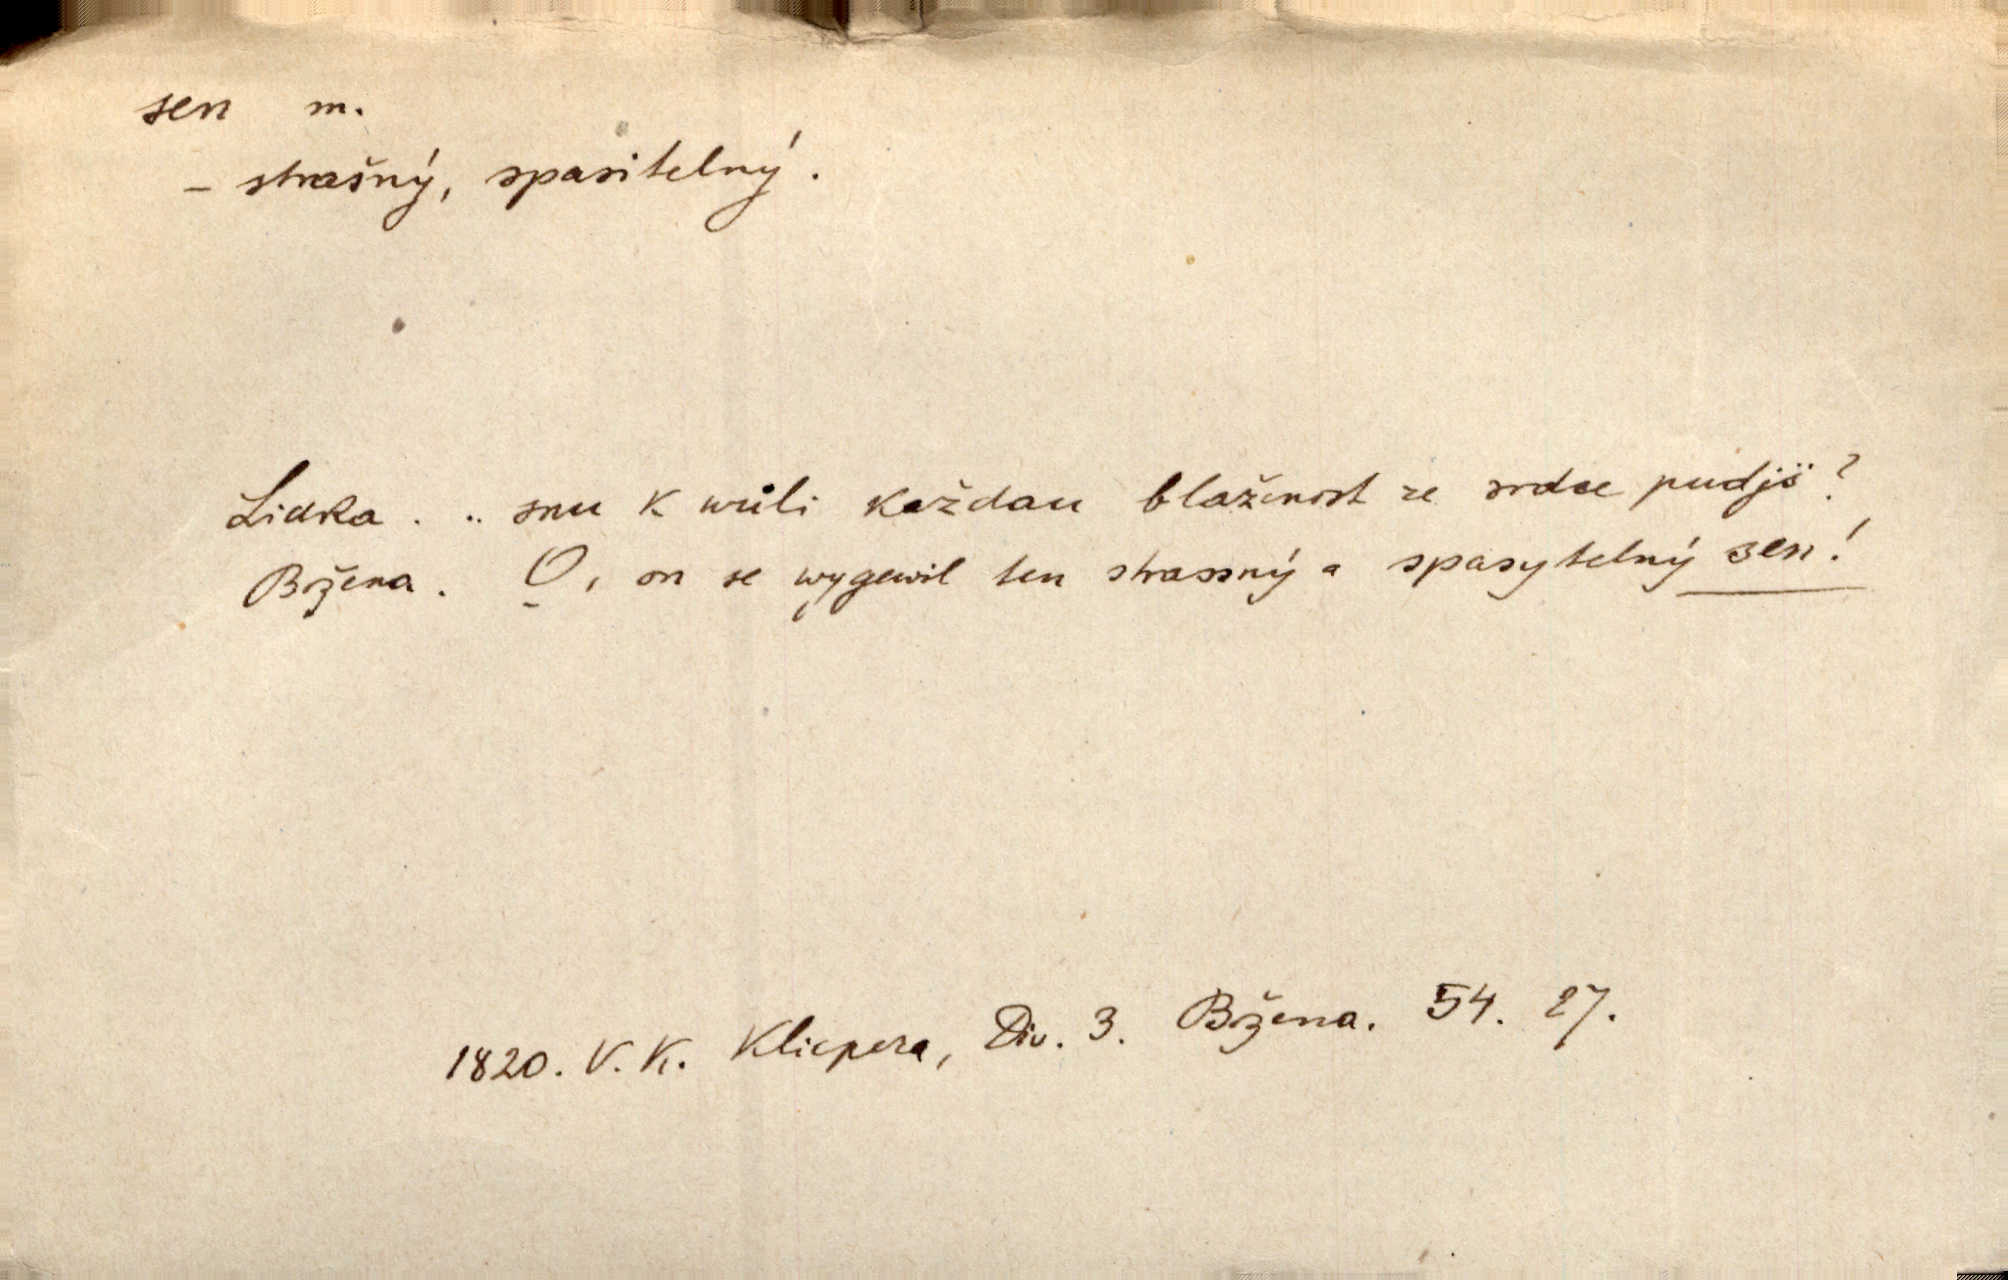 sen m.
– strašný, spasitelný.
Lidka . .. snu k wůli každau blaženost ze srdce pudjš?
Božena. O, on se wygewil ten strassný a spasytelný sen!
1820. V. K. Klicpera, Div. 3. Božena. 54. 27.